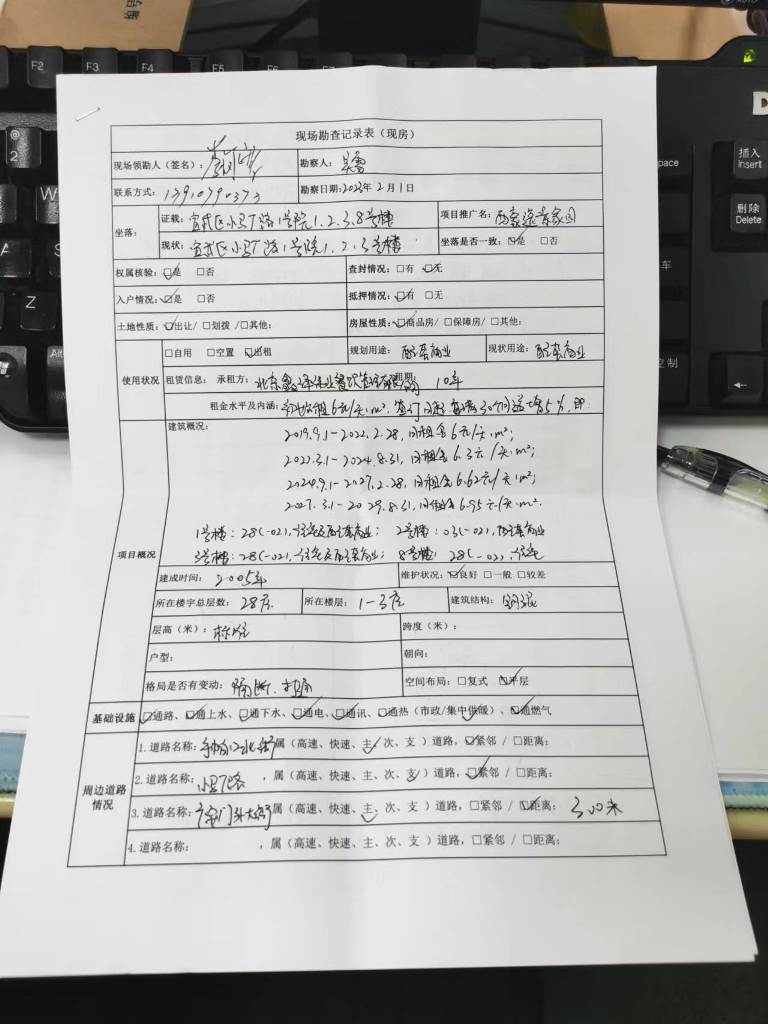 现场勘查记录表（现房）
现场领勘人（签名）： 勘察人：吴雪
联系方式： 勘察日期:2023年 2月1日
坐落： 证载：宣武区小马厂路1号院1.2.3.8号楼 项目推广名：西豪逸景家园
现状：宣武区小马厂路1号院1.2.3号楼 坐落是否一致：☑是 □否
权属核验：☑是 □否 查封情况：□有 ☑无
入户情况：☑是 □否 抵押情况：☑有 □无
土地性质：☑出让/ □划拨 /□其他： 房屋性质：☑商品房/ □保障房/ □其他：
使用状况 □自用 □空置 ☑出租 规划用途： 配套商业 现状用途： 配套商业
租赁信息： 承租方： 北京 租期： 10年
租金水平及内涵：初始租6元/天·m². 递增5%,即
项目概况 建筑概况：
2019.9.1-2022.2.28,日租金6元/天·m²;
2022.3.1-2024.8.31,日租金6.3元/天·m²;
2024.9.1-2027.2.28,日租金6.62元/天·m²;
2027.3.1-2029.8.31,日租金6.95元/天·m².
1号楼：28(-02),住宅及配套商业； 2号楼：03(-02),配套商业
3号楼：28(-02),住宅及配套商业； 8号楼：28(-02),住宅
建成时间： 2005年 维护状况：☑良好 □一般 □较差
所在楼宇总层数： 28层 所在楼层： 1-3层 建筑结构： 钢混
层高（米）：标准 跨度（米）：
户型： 朝向：
格局是否有变动： 隔断、打通 空间布局：□复式 ☑平层
基础设施 ☑通路、☑通上水、☑通下水、☑通电、☑通讯、☑通热（市政/集中供暖）、☑通燃气
周边道路情况 1.道路名称： 属（高速、快速、主、次、支 ）道路，☑紧邻 / □距离：
2.道路名称：小马厂路 ，属（高速、快速、主、次、支 ）道路，☑紧邻 / □距离：
3.道路名称：广安门外大街 属（高速、快速、主、次、支 ）道路，□紧邻 / ☑距离： 300米
4.道路名称： ，属（高速、快速、主、次、支 ）道路，□紧邻 / □距离：
F2
F3
F4
F5
F6
F7
F8
@
2
W
A
S
Z
Alt
插入
Insert
删除
Delete